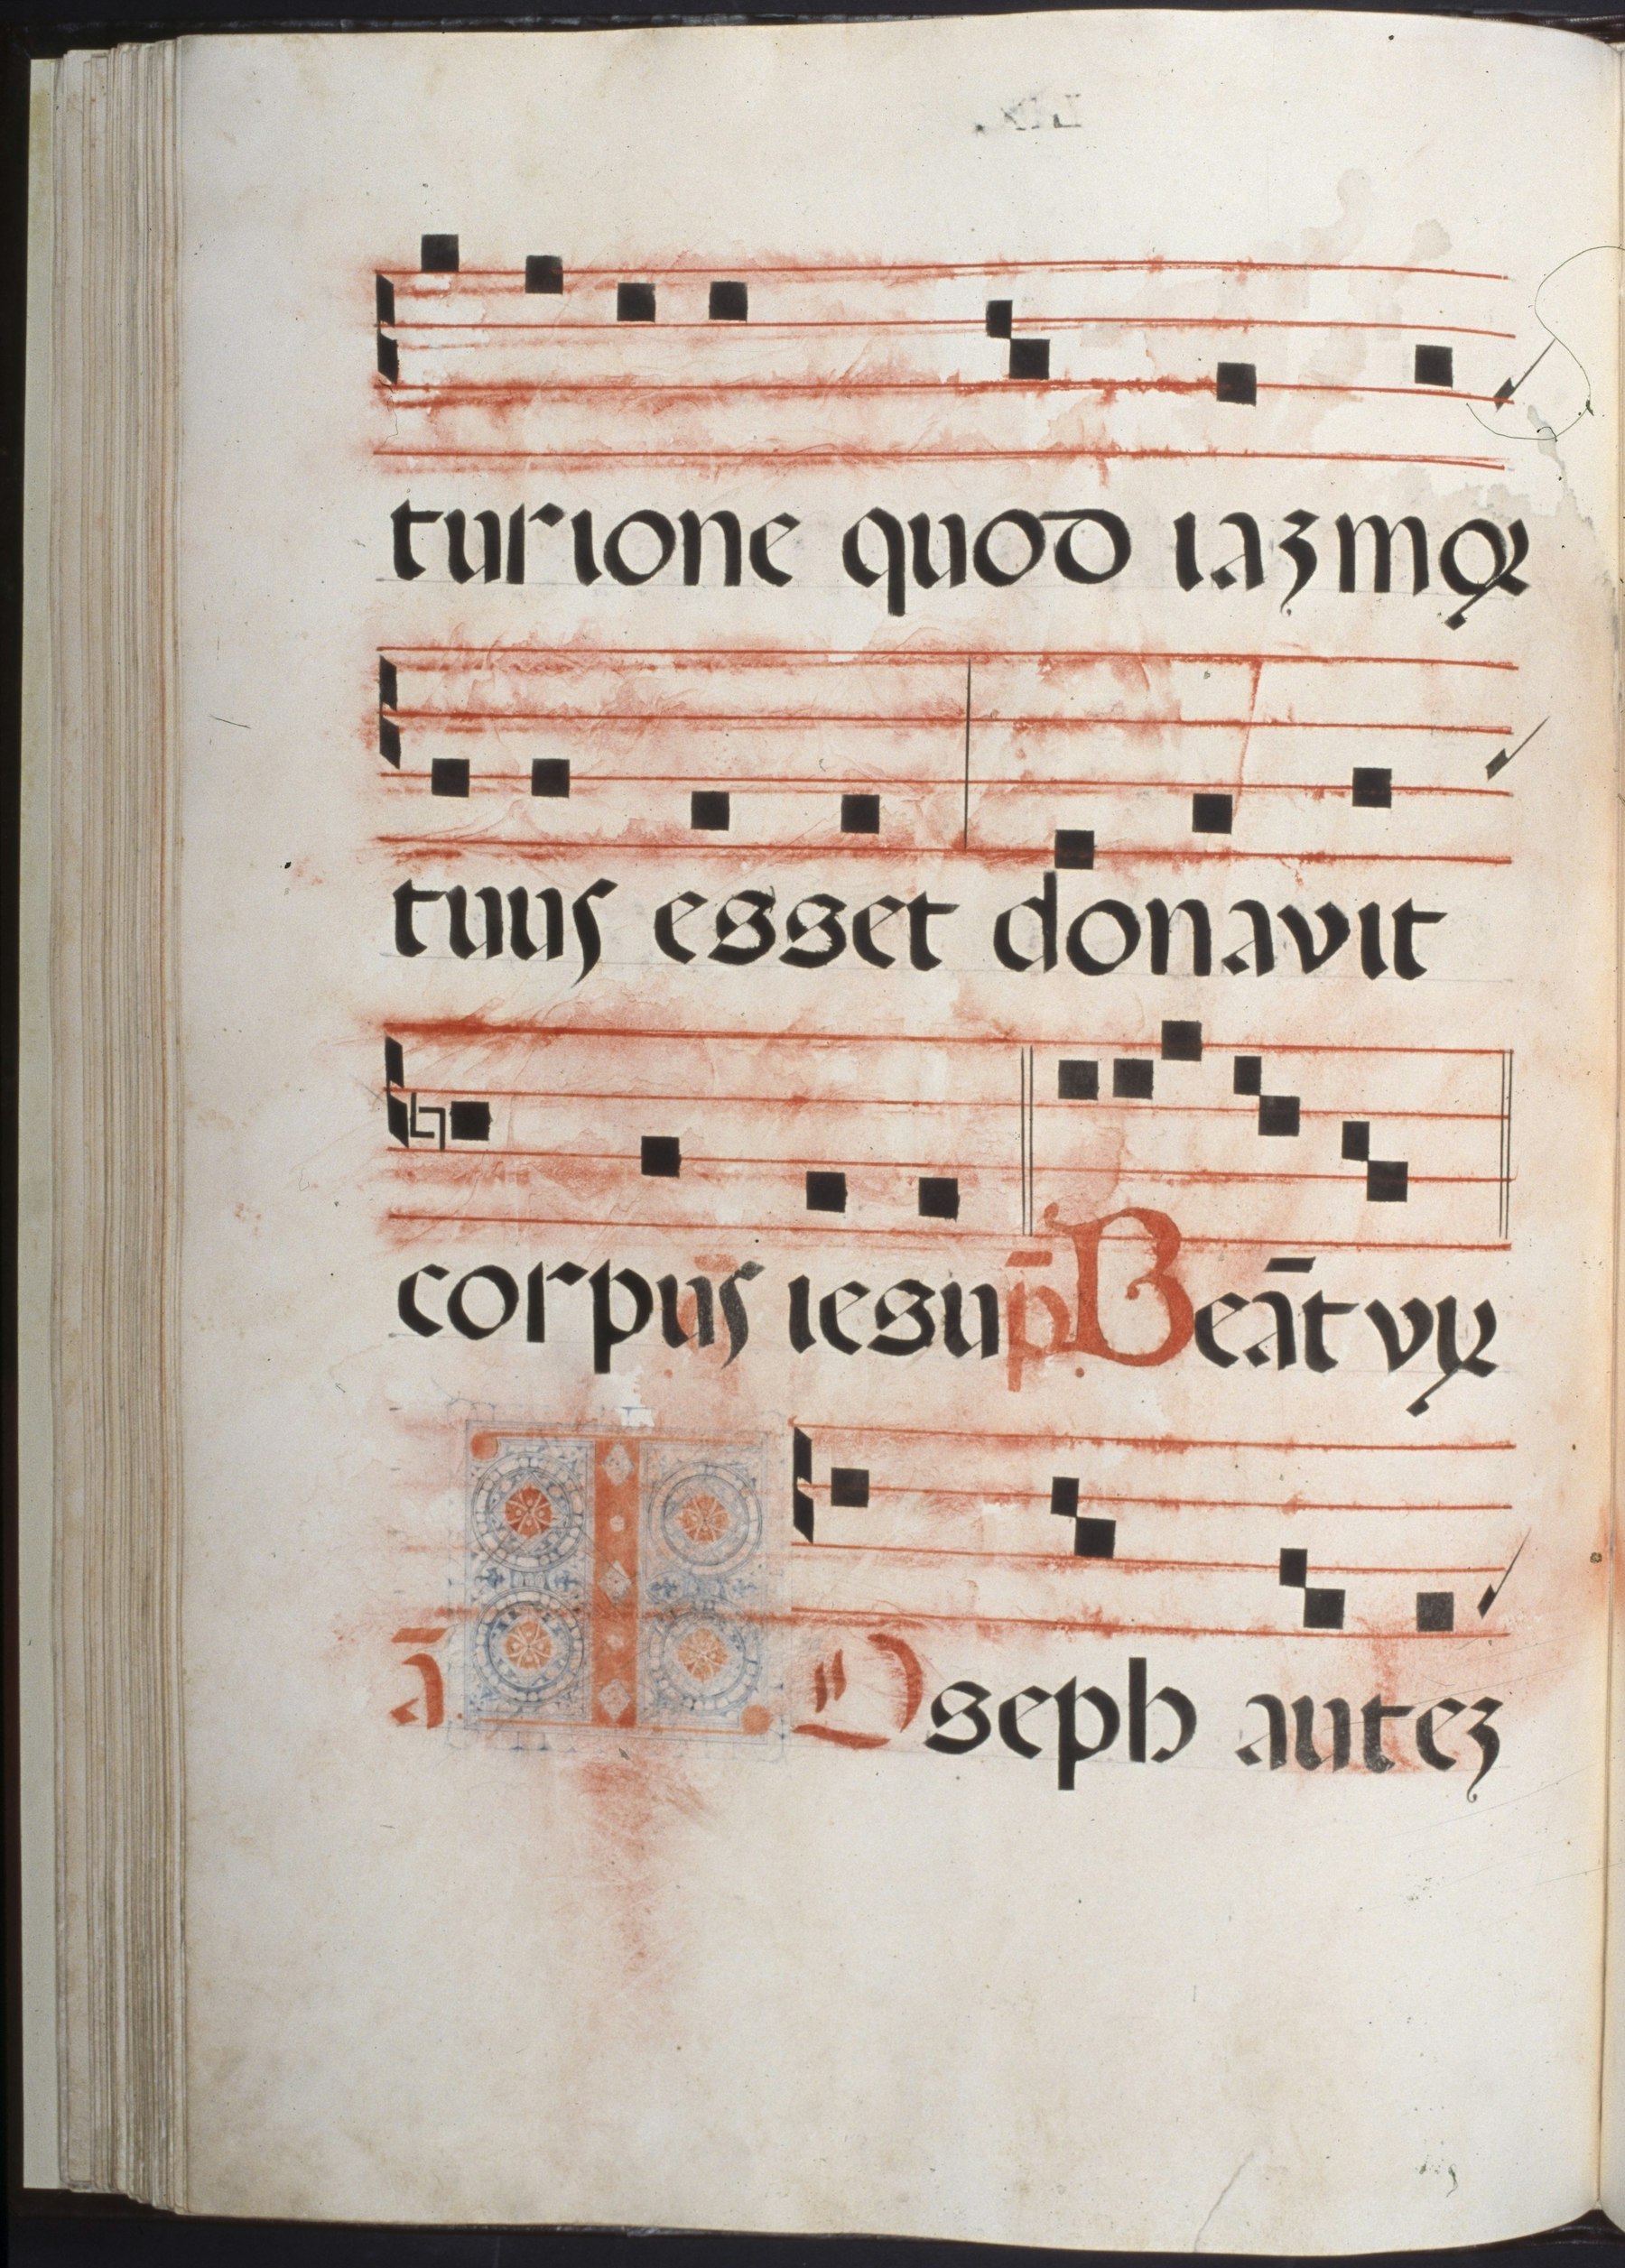 turione quod iaꝫ moꝝ
tuus esset donavit
corpus iesu p̄. Beāt vıꝝ
ā. IOseph auteꝫ